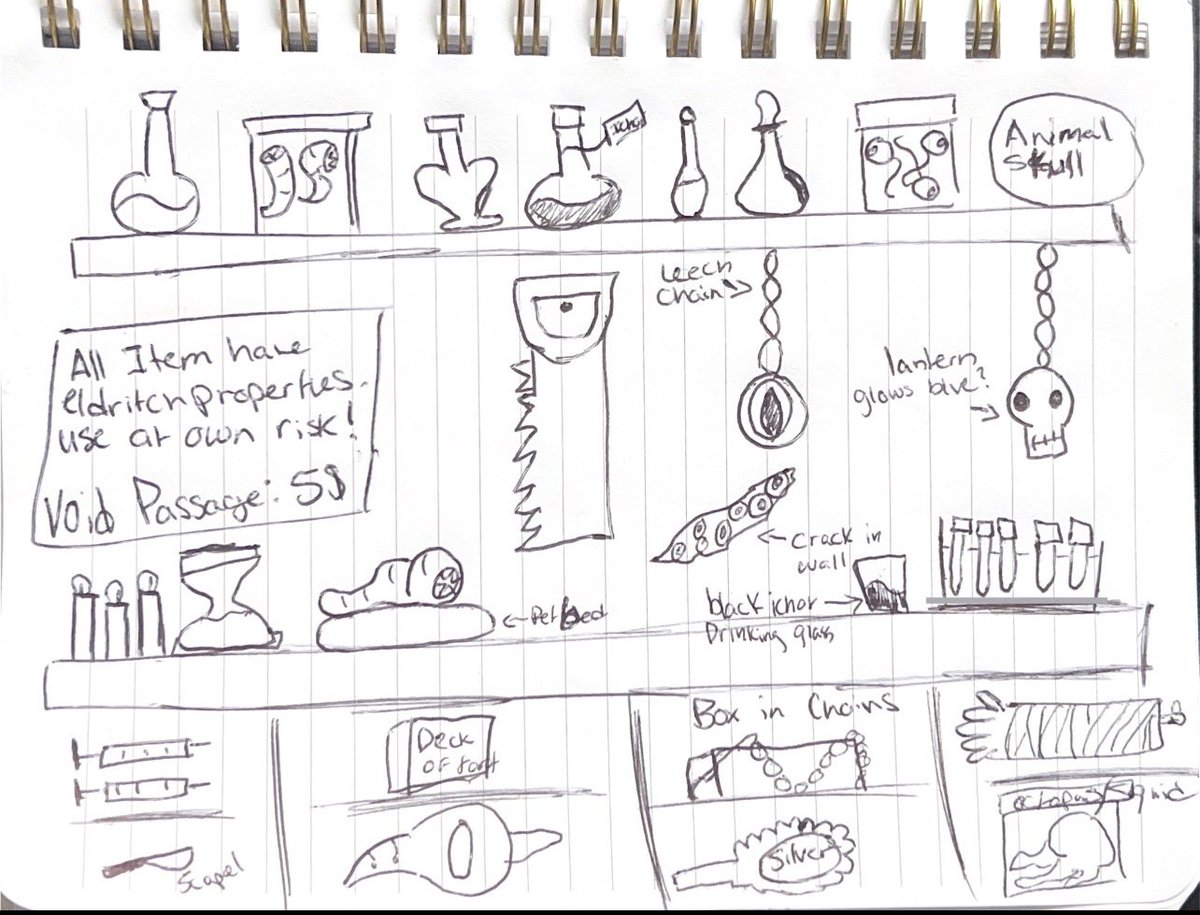 Ichor
Animal
Skull
Leech
Chain
lantern
glows blue?
All Item have
eldritch properties.
use at own risk!
Void Passage: 5$
Crack in
wall
Pet bed
black ichor
Drinking glass
Deck
of
Box in Chains
Scapel
Silver
octopus/squid